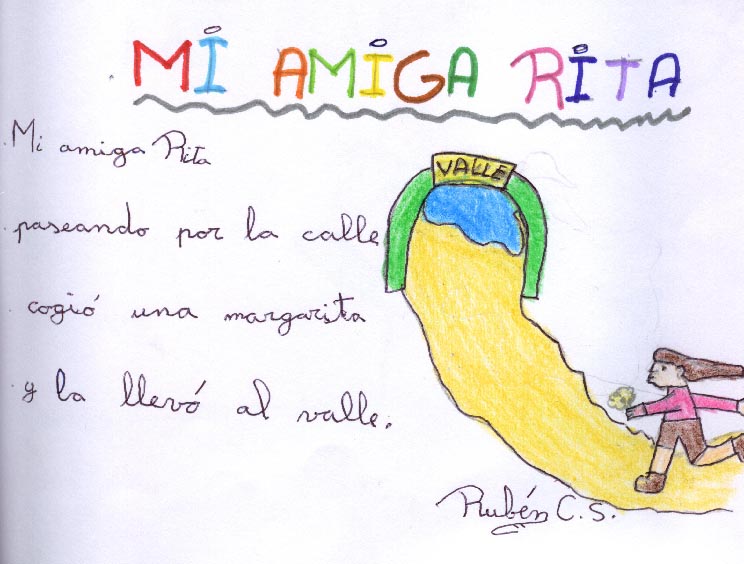 MI AMIGA RITA
Mi amiga Rita
paseando por la calle
cogió una margarita
y la llevó al valle.
VALLE
Rubén C.S.